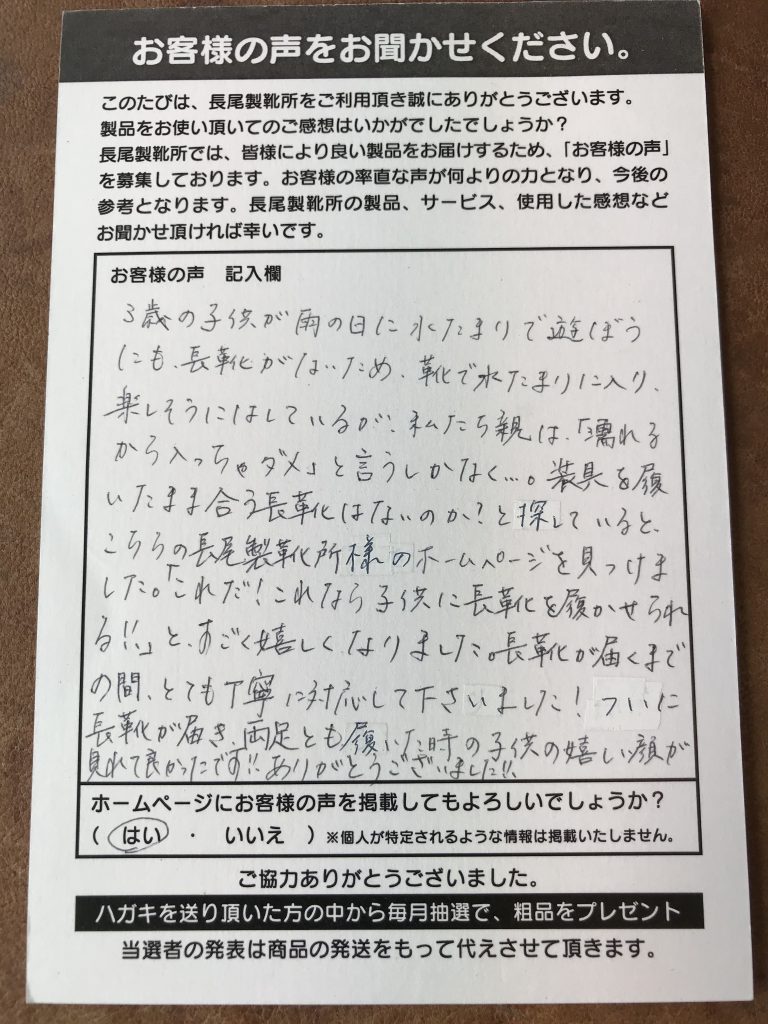 お客様の声をお聞かせください。
このたびは、長尾製靴所をご利用頂き誠にありがとうございます。
製品をお使い頂いてのご感想はいかがでしたでしょうか？
長尾製靴所では、皆様により良い製品をお届けするため、「お客様の声」
を募集しております。お客様の率直な声が何よりの力となり、今後の
参考となります。長尾製靴所の製品、サービス、使用した感想など
お聞かせ頂ければ幸いです。
お客様の声　記入欄
3歳の子供が雨の日に水たまりで遊ぼう
にも、長靴がないため、靴で水たまりに入り、
楽しそうにはしているが、私たち親は、「濡れる
から入っちゃダメ」と言うしかなく…。装具を履
いたまま合う長靴はないのか？と探していると、
こちらの長尾製靴所様のホームページを見つけま
した。「これだ！これなら子供に長靴を履かせられ
る!!」と、すごく嬉しくなりました。長靴が届くまで
の間、とても丁寧に対応して下さいました！ついに
長靴が届き、両足とも履いた時の子供の嬉しい顔が
見れて良かったです!!ありがとうございました!!
ホームページにお客様の声を掲載してもよろしいでしょうか？
（　はい　・　いいえ　）※個人が特定されるような情報は掲載いたしません。
ご協力ありがとうございました。
ハガキを送り頂いた方の中から毎月抽選で、粗品をプレゼント
当選者の発表は商品の発送をもって代えさせて頂きます。